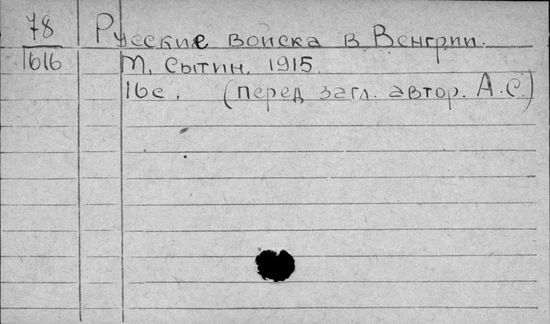 78 Русские войска в Венгрии.
1616 М, Сытин, 1915.
16с. (перед загл. автор. А.С.)